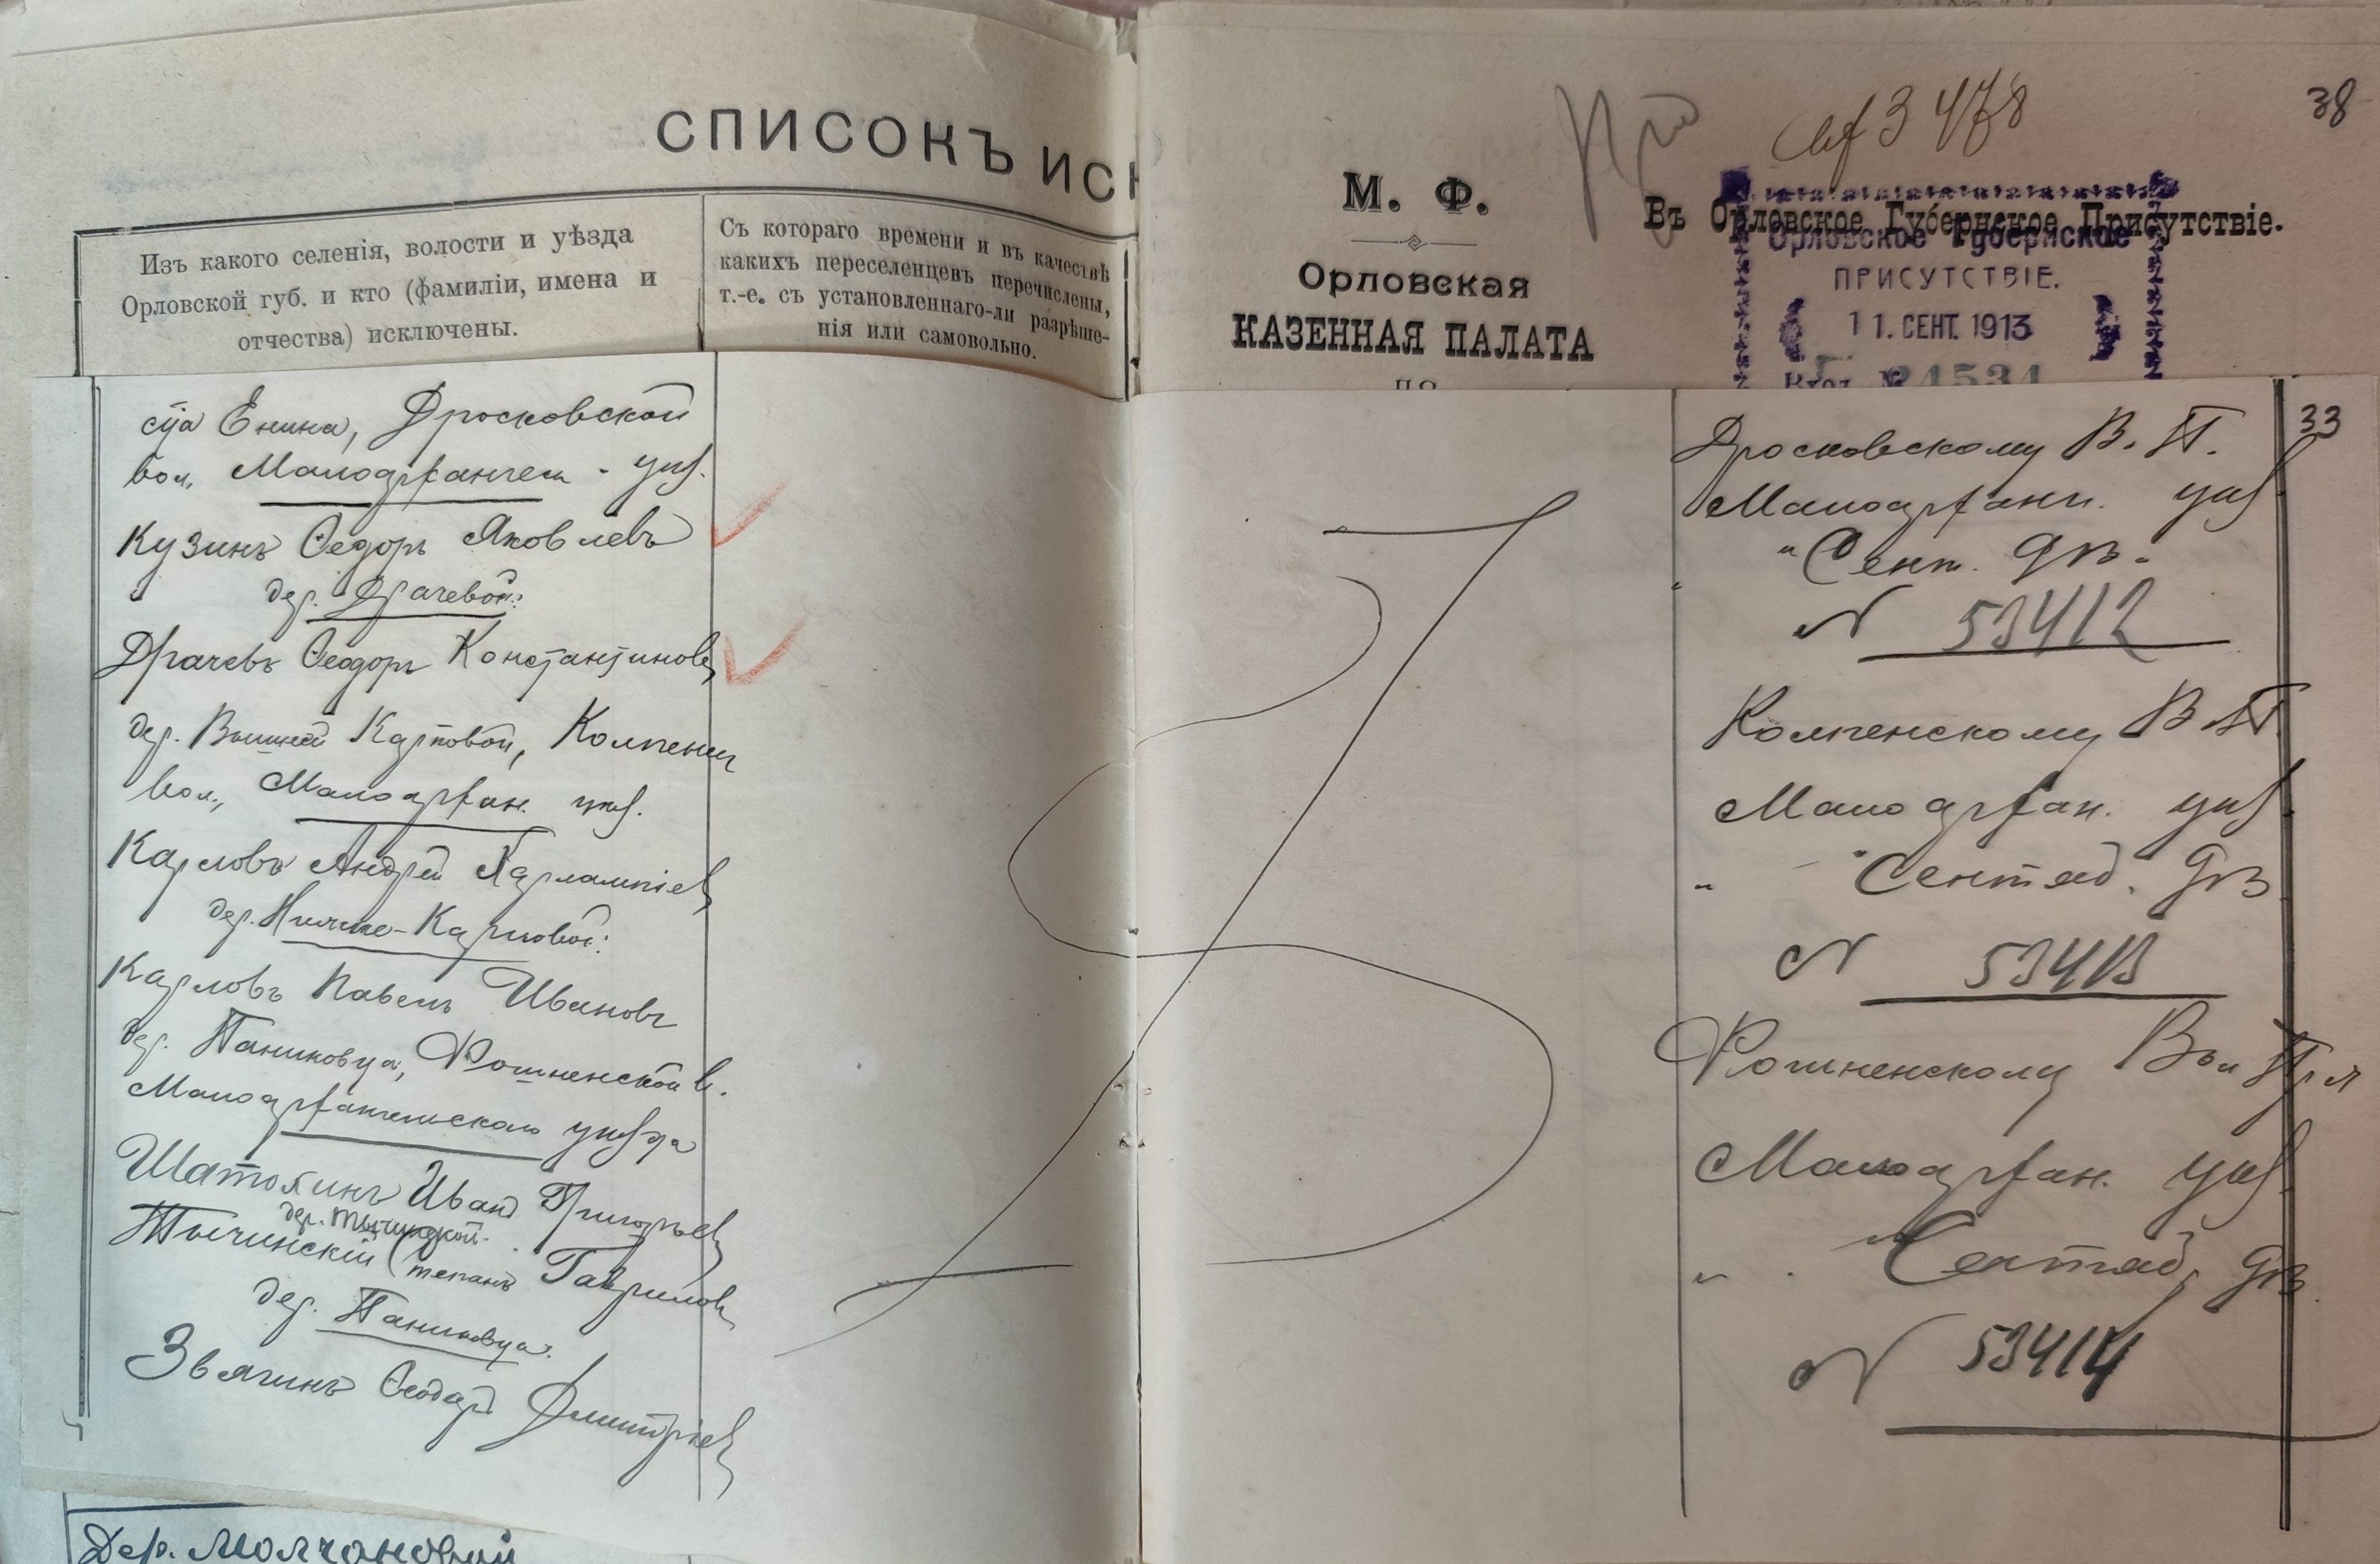 СПИСОКЪ ИСК
Изъ какого селенія, волости и уѣзда
Орловской губ. и кто (фамиліи, имена и
отчества) исключены.
Съ котораго времени и въ качествѣ
какихъ переселенцевъ перечислены,
т.-е. съ установленнаго-ли разрѣше-
нія или самовольно.
с-ца Енина, Дросковской
вол. Малоархангел. уѣз.
Кузинъ Ѳедоръ Яковлевъ
дер. Драчевой:
Драчевъ Ѳеодоръ Константиновъ
дер. Вышней Карповой, Колпенск
вол., Малоархан. уѣз.
Карловъ Андрей Харлампіев
дер. Нижне-Карповой:
Карловъ Павелъ Ивановъ
дер. Паниковца, Фошненской в.
Малоархангельскаго уѣзда
Шатохинъ Иванъ Григорьев
дер. Тычинской
Тычинскій Степанъ Гаврилов
дер. Паниковца:
Звягинъ Ѳеодоръ Дмитріев
Дер. Молчановой
38
3478
М. Ф.
Орловская
КАЗЕННАЯ ПАЛАТА
ПО
Въ Орловское Губернское Присутствіе.
Орловское Губернское
ПРИСУТСТВІЕ.
11. СЕНТ. 1913
Вход. № 24534
33
Дросковскому В. П.
Малоархан. уѣз
" Сент. 913.
N 53412
Колпенскому В П.
Малоархан. уѣз.
" Сентяб. 913
N 53413
Фошненскому Вол Пр-я
Малоархан. уѣз.
" Сентяб. 913
N 53414